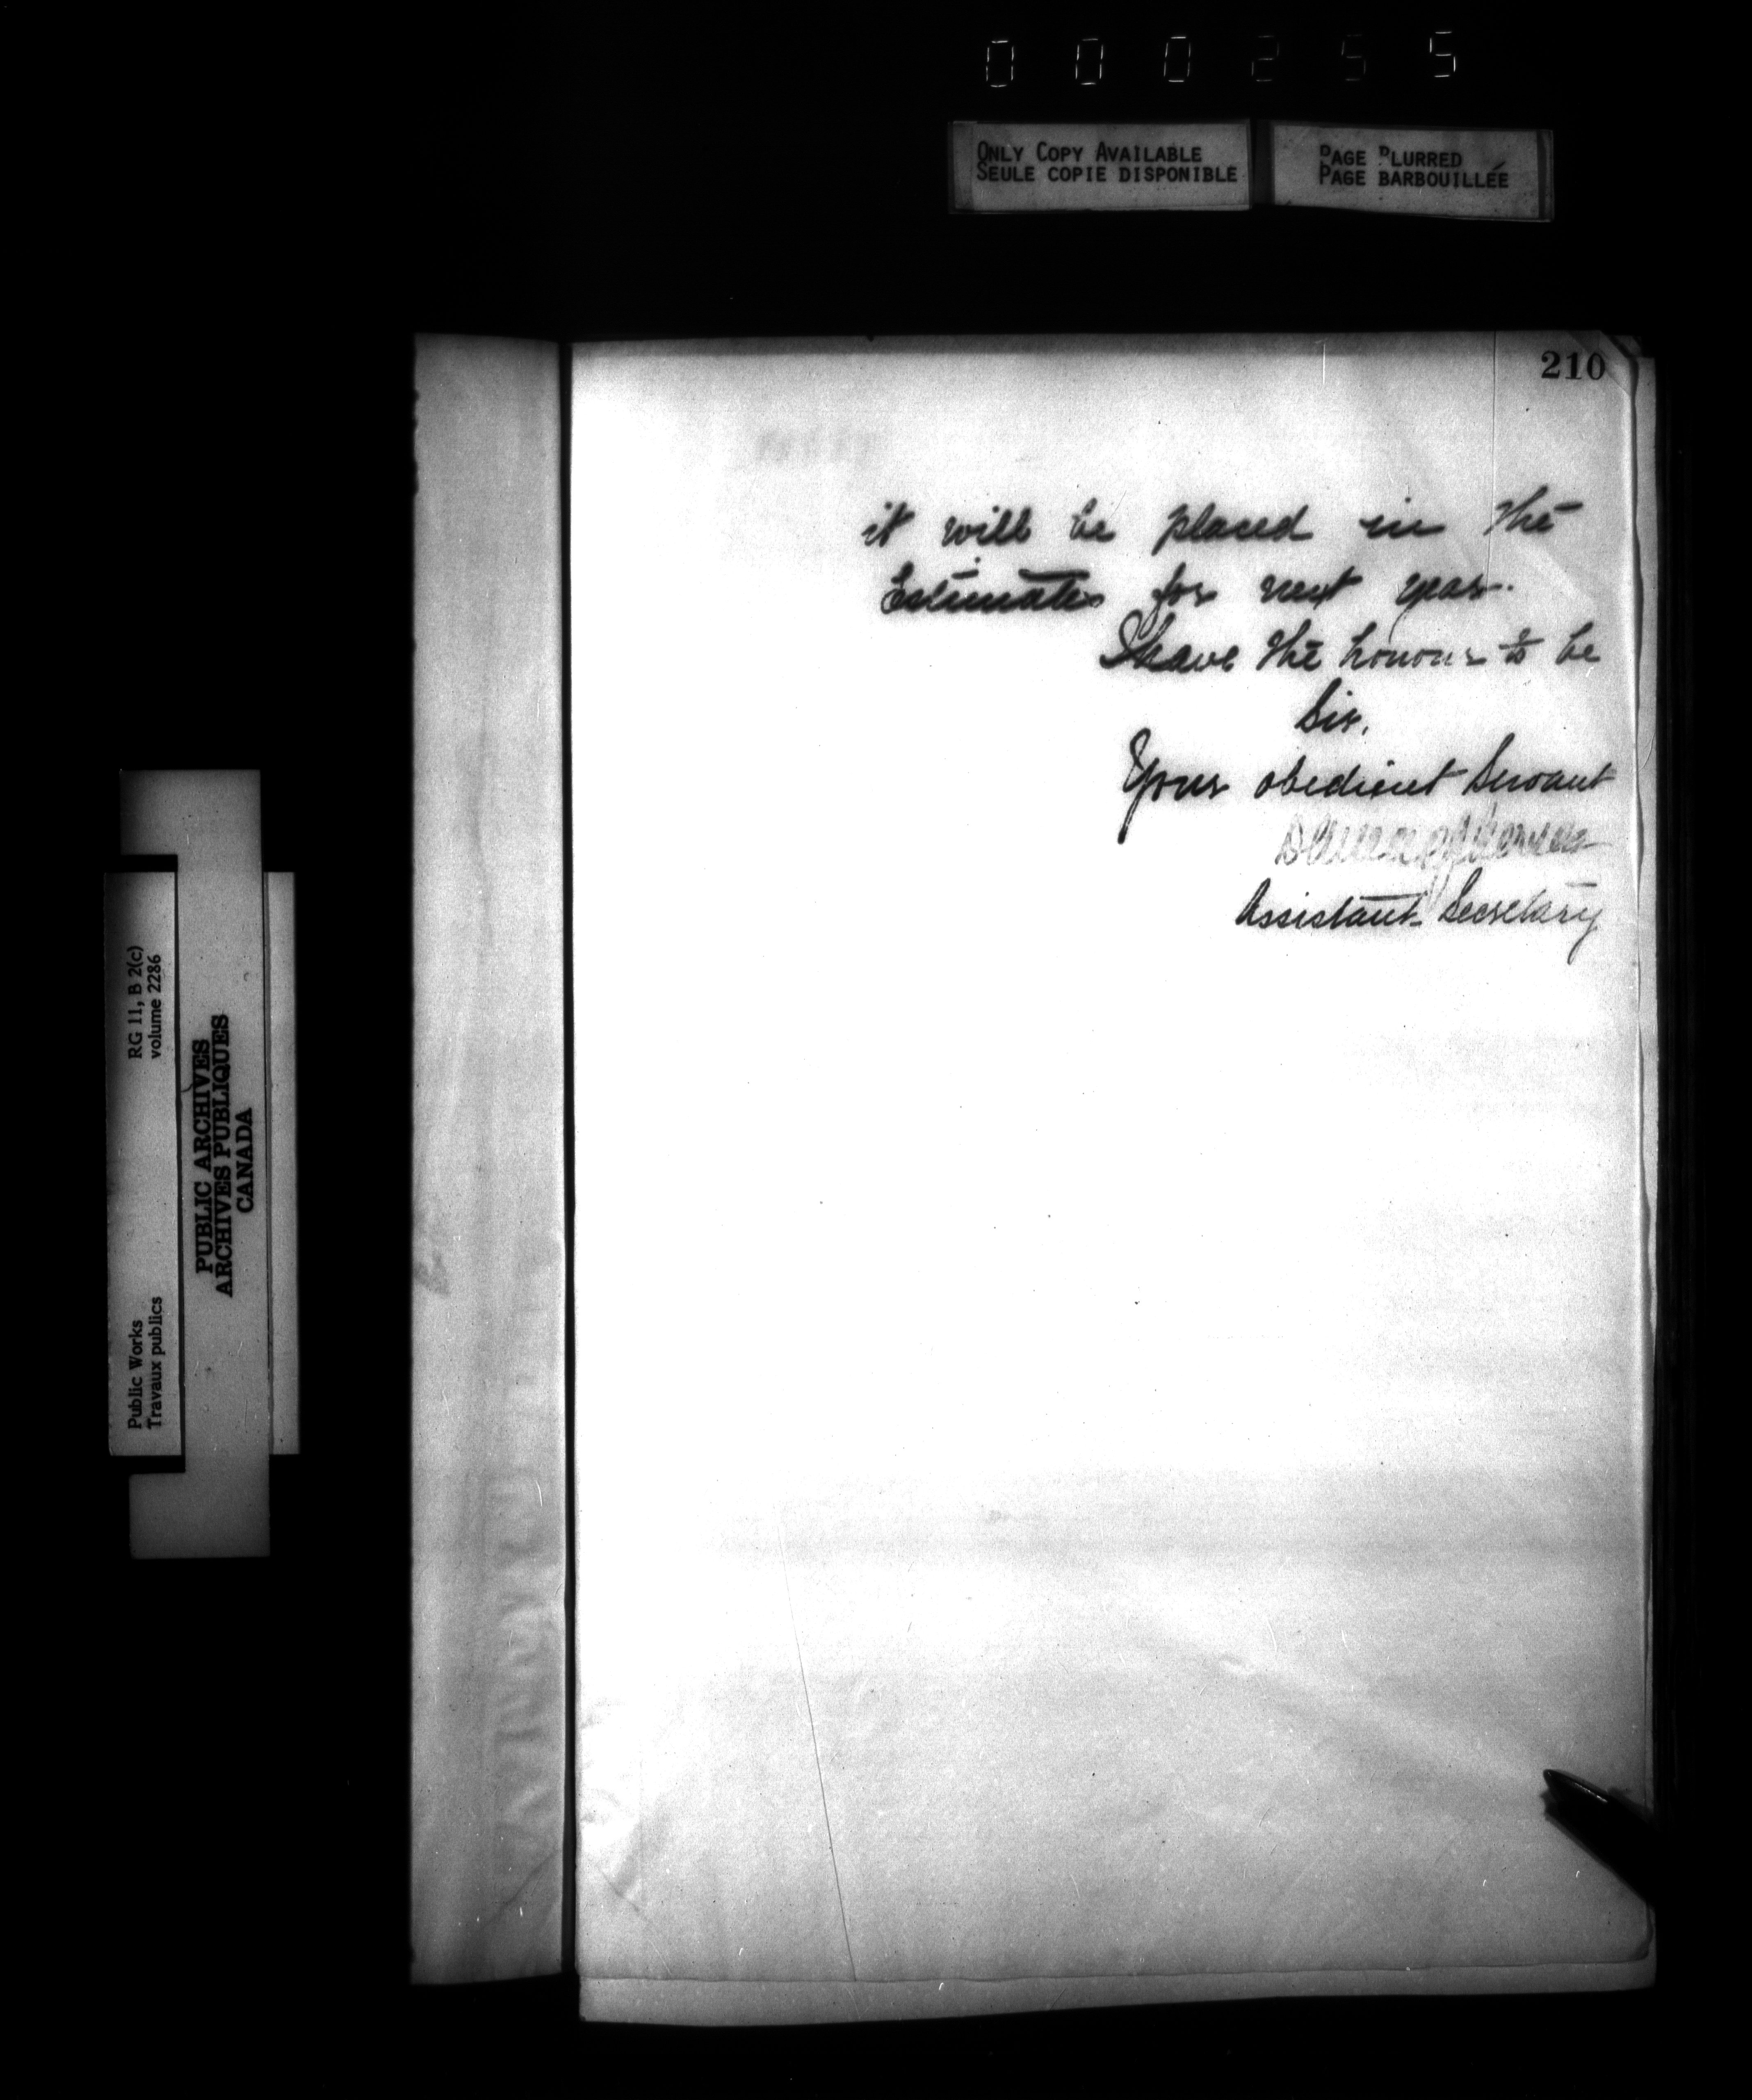 000255
ONLY COPY AVAILABLE
SEULE COPIE DISPONIBLE
PAGE BLURRED
PAGE BARBOUILLÉE
210
it will be placed in the
Estimates for next year.
I have the honour to be
Sir,
Your obedient Servant
Assistant Secretary
RG 11, B 2(c)
volume 2286
Public Works
Travaux publics
PUBLIC ARCHIVES
ARCHIVES PUBLIQUES
CANADA